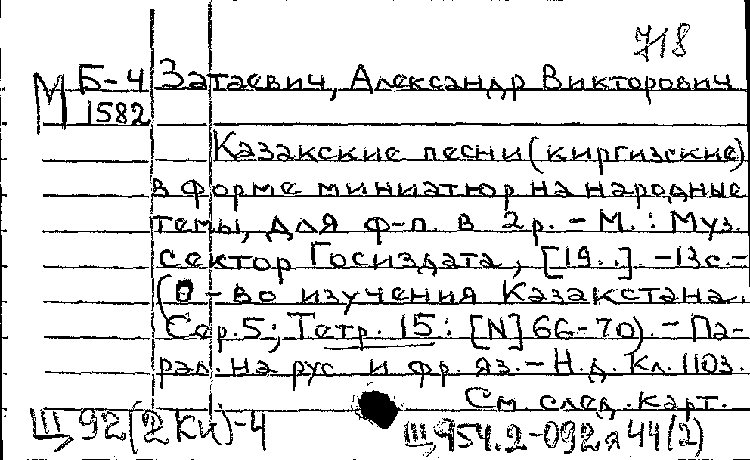 718
М Б-4 Затаевич, Александр Викторович
1582
Казакские песни (киргизские)
в форме миниатюр на народные
темы, для ф-п. в 2р. - М. : Муз.
сектор Госиздата, [19..]. - 13с. -
(О-во изучения Казакстана.
Сер.5; Тетр. 15: [N] 66-70). - Па-
рал. на рус и фр. яз. - Н.д. Кл. 1103.
См. след. карт.
Щ 92(2Ки)-4 Щ 954.2-092я44(2)